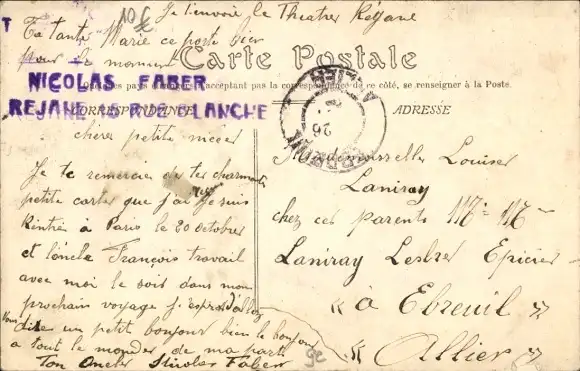 Je t'envoie le Theatre Rejane
10 c
Ta tante Marie ce porte bien
pour le moment
Carte Postale
pays n'acceptant pas la correspondance de ce côté, se renseigner à la Poste.
NICOLAS FABER
REJANE RUE BLANCHE
CORRESPONDANCE
ADRESSE
chère petite nièce
Je te remercie de tes charmantes
petite cartes que j'ai Je suis
Rentrée à Paris le 20 octobre
et l'oncle François travail
avec moi le soir dans mon
prochain voyage j'espère
Vous dire un petit bonjour bien le bonjour
a tout le monde de ma part
Ton Oncle Nicolas Faber
26
Mademoiselle Louise
Laniray
chez ces parents Mr Mme
Laniray Epicier
« à Ebreuil »
« Allier »